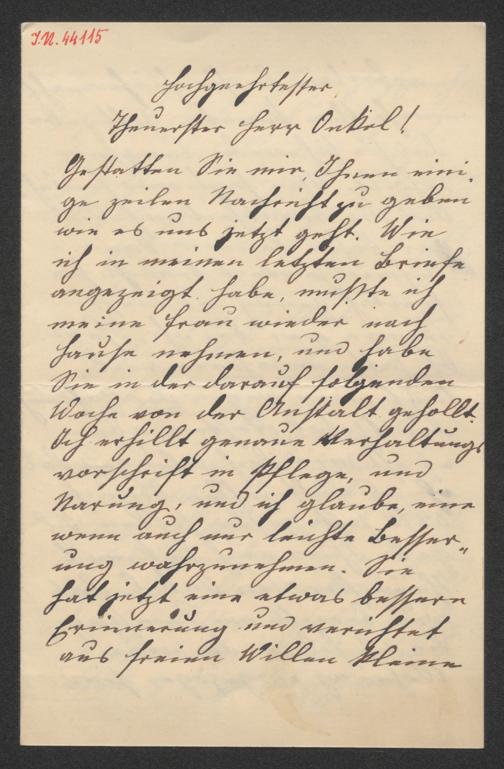 I.N. 44115
Hochgeehrtester
Theuerster Herr Onkel!
Gestatten Sie mir, Ihnen eini-
ge zeilen Nachricht zu geben
wie es uns jetzt geht. Wie
ich in meinen letzten Briefe
angezeigt habe, mußte ich
meine Frau wieder nach
Hause nehmen, und habe
Sie in der darauf folgenden
Woche von der Anstalt gehollt.
Ich erhillt genaue Verhaltungs
vorschrift in Pflege, und
Narung, und ich glaube, eine
wenn auch nur leichte Besser-
ung wahrzunehmen. Sie
hat jetzt eine etwas bessere
Erinnerung und verichtet
aus freien Willen kleine